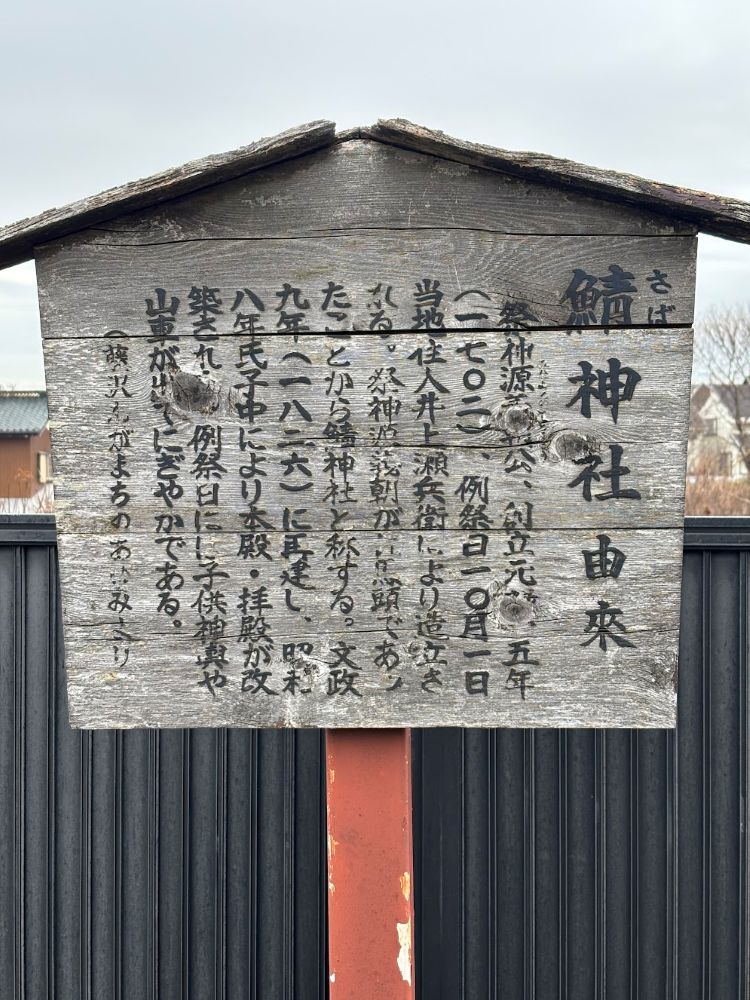 さば
鯖神社由來
祭神源義朝公、創立元禄五年
(一七〇二)、例祭日一〇月一日
当地住人井上瀬兵衛により造立さ
れる。祭神源義朝が馬頭であっ
たことから鯖神社と称する。文政
九年(一八二六)に再建し、昭和
八年氏子中により本殿・拝殿が改
築され、例祭日には子供神輿や
山車が出てにぎやかである。
(藤沢わがまちのあゆみより